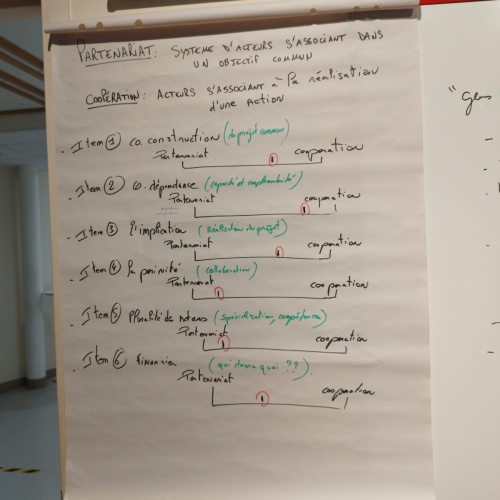 PARTENARIAT: SYSTEME D'ACTEURS S'ASSOCIANT DANS
UN OBJECTIF COMMUN
COOPÉRATION: ACTEURS S'ASSOCIANT à la réalisation
d'une action
- Item ① co.construction (du projet commun)
Partenariat cooperation
- Item ② co.dépendance
Partenariat cooperation
- Item ③ l'implication (Réalisation du projet)
Partenariat cooperation
- Item ④ la (collaboration)
Partenariat cooperation
- Item ⑤ Pluralité de (spécialisation, compétences)
Partenariat cooperation
- Item ⑥ financier (qui donne quoi ??).
Partenariat cooperation